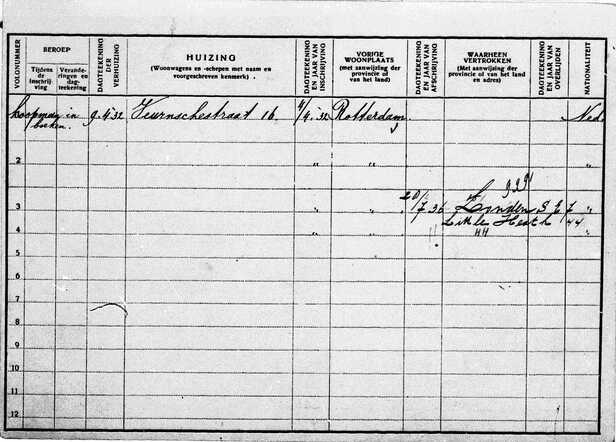 VOLGNUMMER
BEROEP
Tijdens de inschrijving
Veranderingen en dagteekening
DAGTEEKENING DER VERHUIZING
HUIZING
(Woonwagens en -schepen met naam en voorgeschreven kenmerk)
DAGTEEKENING EN JAAR VAN INSCHRIJVING
VORIGE WOONPLAATS
(met aanwijzing der provincie of van het land)
DAGTEEKENING EN JAAR VAN AFSCHRIJVING
WAARHEEN VERTROKKEN
(Met aanwijzing der provincie of van het land en adres)
DAGTEEKENING EN JAAR VAN OVERLIJDEN
NATIONALITEIT
koopman in 9.4.32 Veurnschestraat 16. 4/4.'32 Rotterdam Ned.
boeken.
2 " " "
20/7 36 Londen S.E. 7
3 " " "
Little Heath 44
4 " " "
HH
5
6
7
8
9
10
11
12